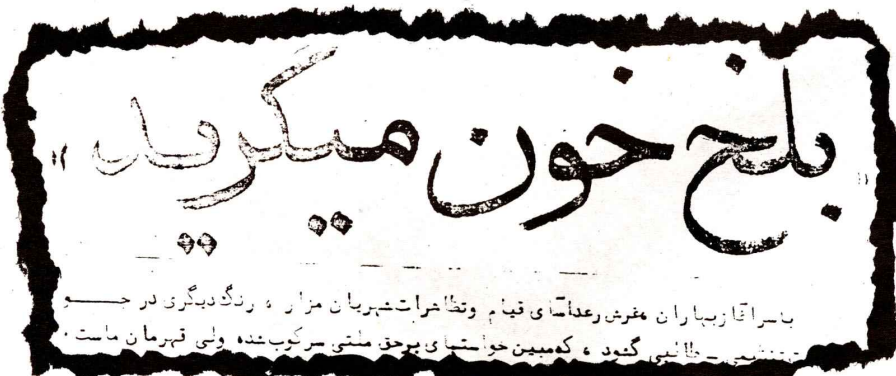 «بلخ خون میگرید»
باسرآغاز بهاران غرش رعدآسای قیام وتظاهرات شهریان مزار ، رنگ دیگری در جـــو
طالبی گشود ، که مبین خواستهای برحق ملتی سرکوب شده ولی قهرمان ماست .